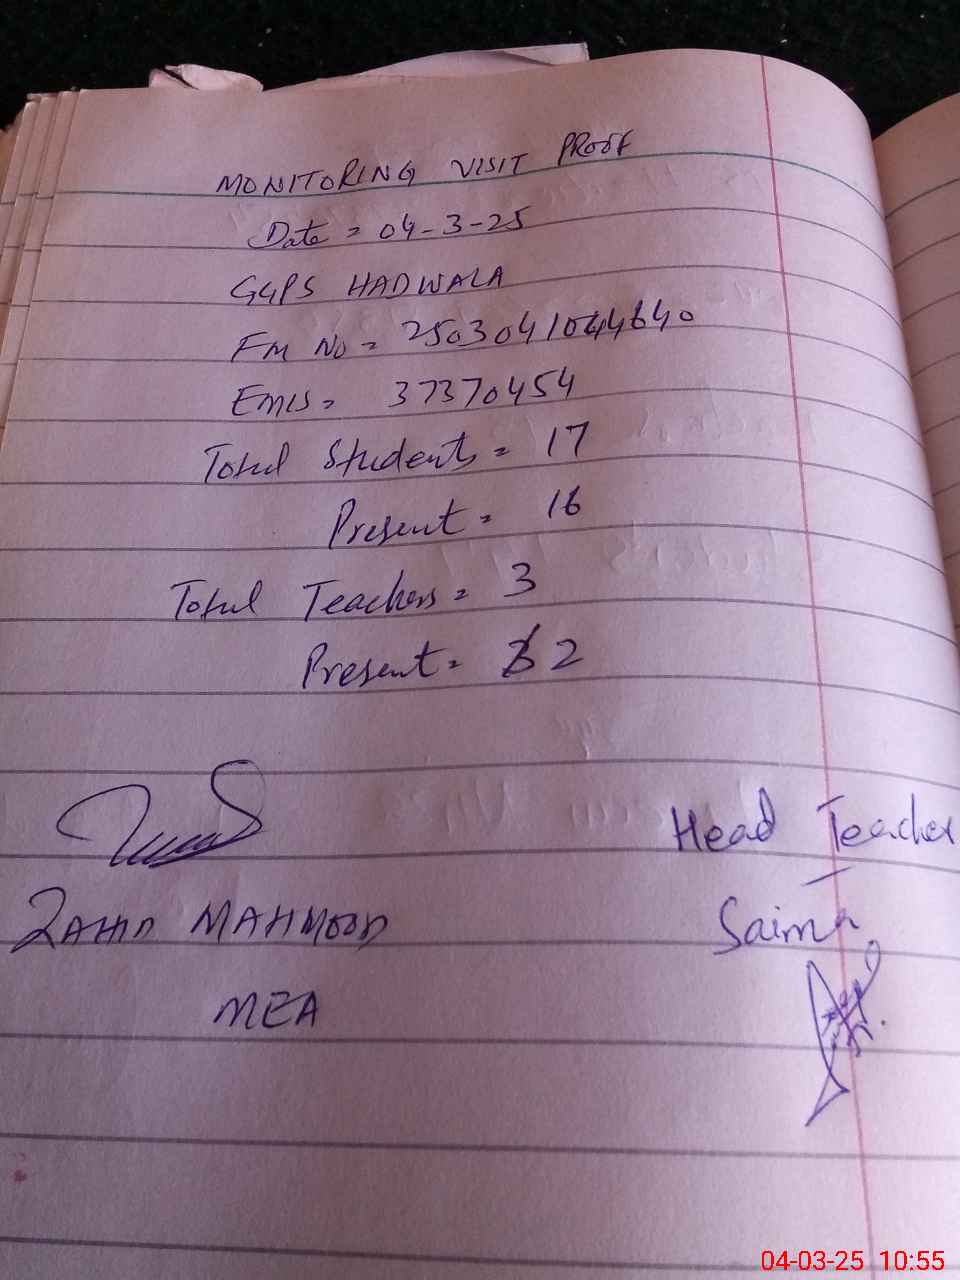 MONITORING VISIT PROOF
Date = 04-3-25
GGPS HADWALA
FM No = 2503041044640
EMIS = 37370454
Total Students = 17
Present = 16
Total Teachers = 3
Present = 2
Head Teacher
ZAHID MAHMOOD
Saima
MEA
04-03-25 10:55